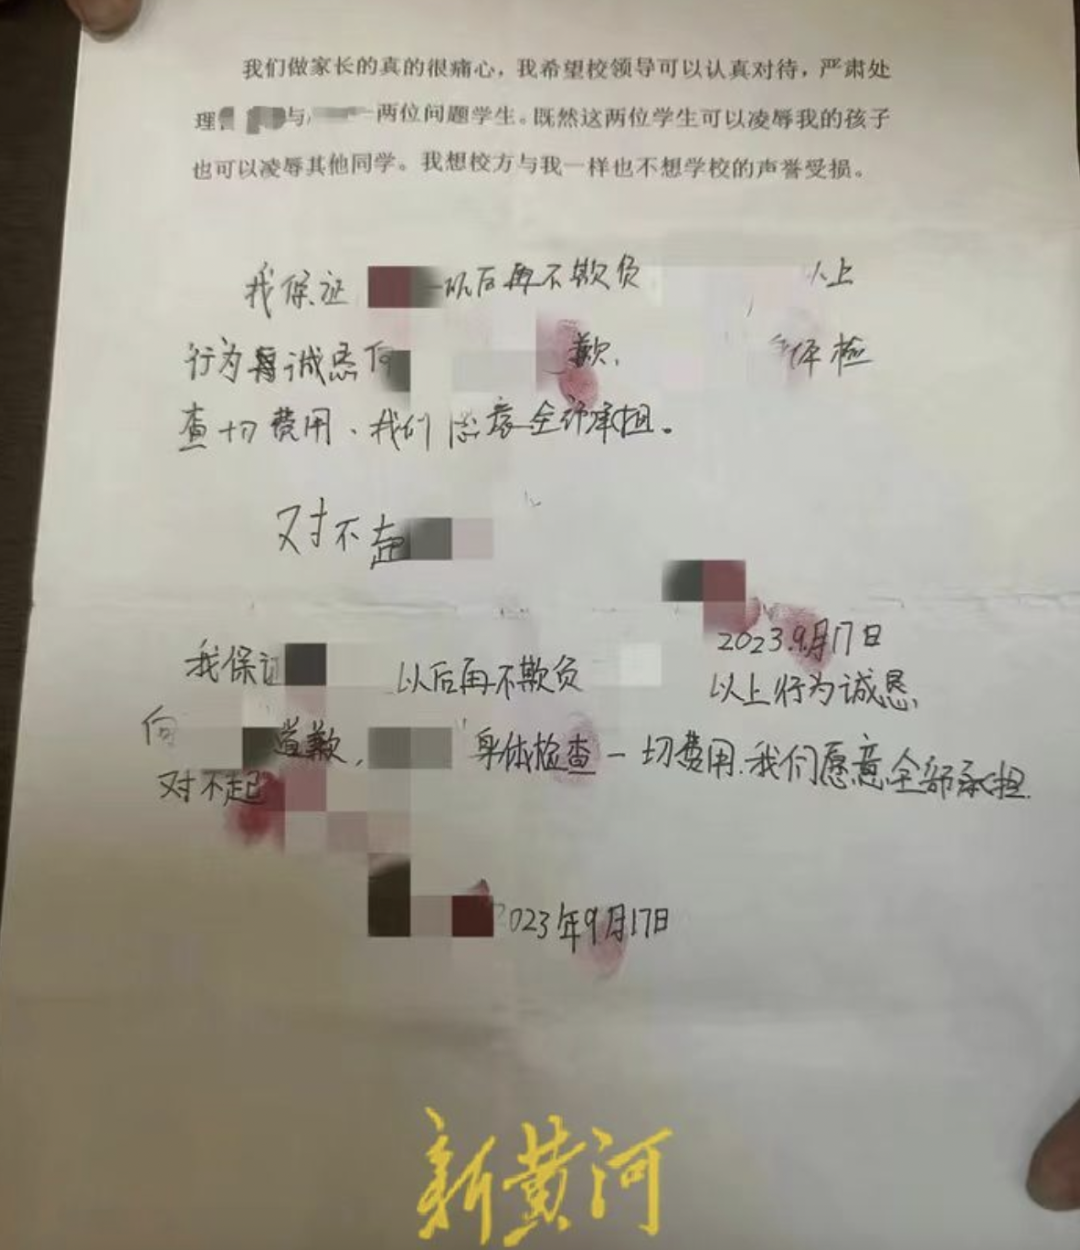 我们做家长的真的很痛心，我希望校领导可以认真对待，严肃处
理 与 一两位问题学生。既然这两位学生可以凌辱我的孩子
也可以凌辱其他同学。我想校方与我一样也不想学校的声誉受损。
我保证 以后再不欺负 以上
行为 诚恳向 歉， 体检
查一切费用、我们愿意全部承担。
对不起
2023.9月17日
我保证 以后再不欺负 以上行为诚恳
向 道歉， 身体检查一切费用.我们愿意全部承担.
对不起
2023年9月17日
新黄河